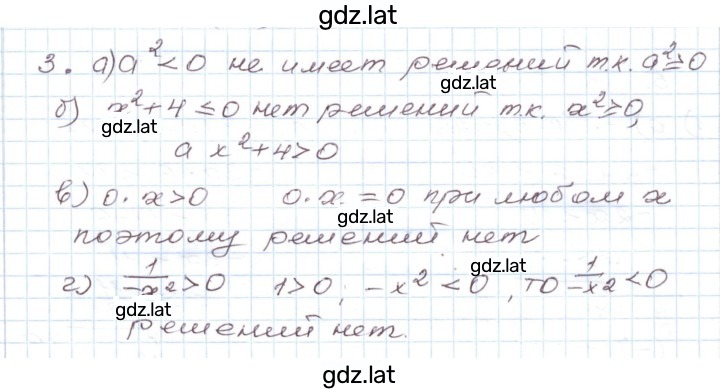 gdz.lat
3. а) a² < 0 не имеет решений т.к. a² ≥ 0
gdz.lat
б) x² + 4 ≤ 0 нет решений т.к. x² ≥ 0,
gdz.lat
а x² + 4 > 0
в) 0 · x > 0 0 · x = 0 при любом x
gdz.lat
поэтому решений нет
gdz.lat
г) 1/-x² > 0 1 > 0, -x² < 0, то 1/-x² < 0
gdz.lat
решений нет.
gdz.lat